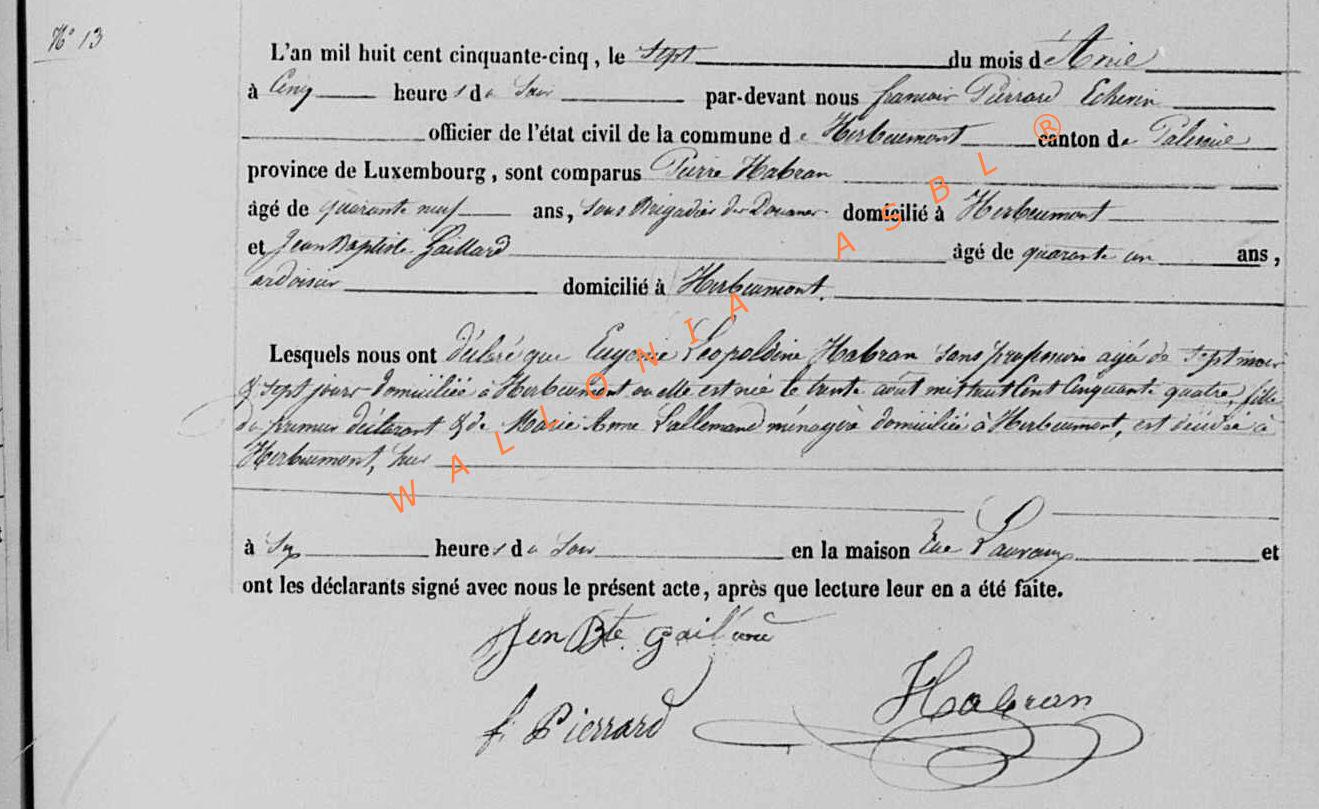 N° 13
L'an mil huit cent cinquante-cinq, le sept du mois d'Avril
à cinq heures du soir par-devant nous françois Pierrard Echevin
officier de l'état civil de la commune de Herbeumont canton de Paliseul
province de Luxembourg, sont comparus Pierre Habran
âgé de quarante neuf ans, Sous Brigadier des Douanes domicilié à Herbeumont
et Jean Baptiste Gaillard âgé de quarante un ans,
ardoisier domicilié à Herbeumont.
Lesquels nous ont déclaré que Eugénie Léopoldine Habran sans profession agée de sept mois
& sept jours domiciliée à Herbeumont ou elle est née le trente août mil huit cent cinquante quatre, fille
du premier déclarant & de Marie Anne Lallemand ménagère domiciliée à Herbeumont, est décédée à
Herbeumont, hier
à six heures du soir en la maison Rue Lauvaux et
ont les déclarants signé avec nous le présent acte, après que lecture leur en a été faite.
Jen Bte Gaillard
f. Pierrard Habran
WALLONIA ASBL ®